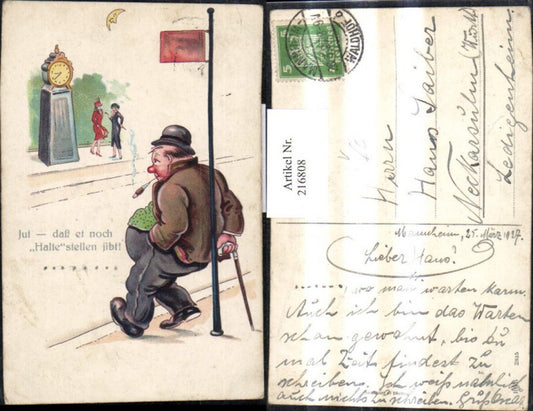 Jut — daß et noch
„Halte“stellen jibt!
Artikel Nr.
216808
5
5
WALDHOF
Herrn
Hans Saiber
Neckarsulm
Ledigenheim.
Mannheim, 25. März 1927.
Lieber Hans!
......, wo man warten kann.
Auch ich bin das Warten
schon gewohnt, bis Du
mal Zeit findest zu
schreiben. Ich weiß nämlich
auch nichts zu schreiben. Gruß